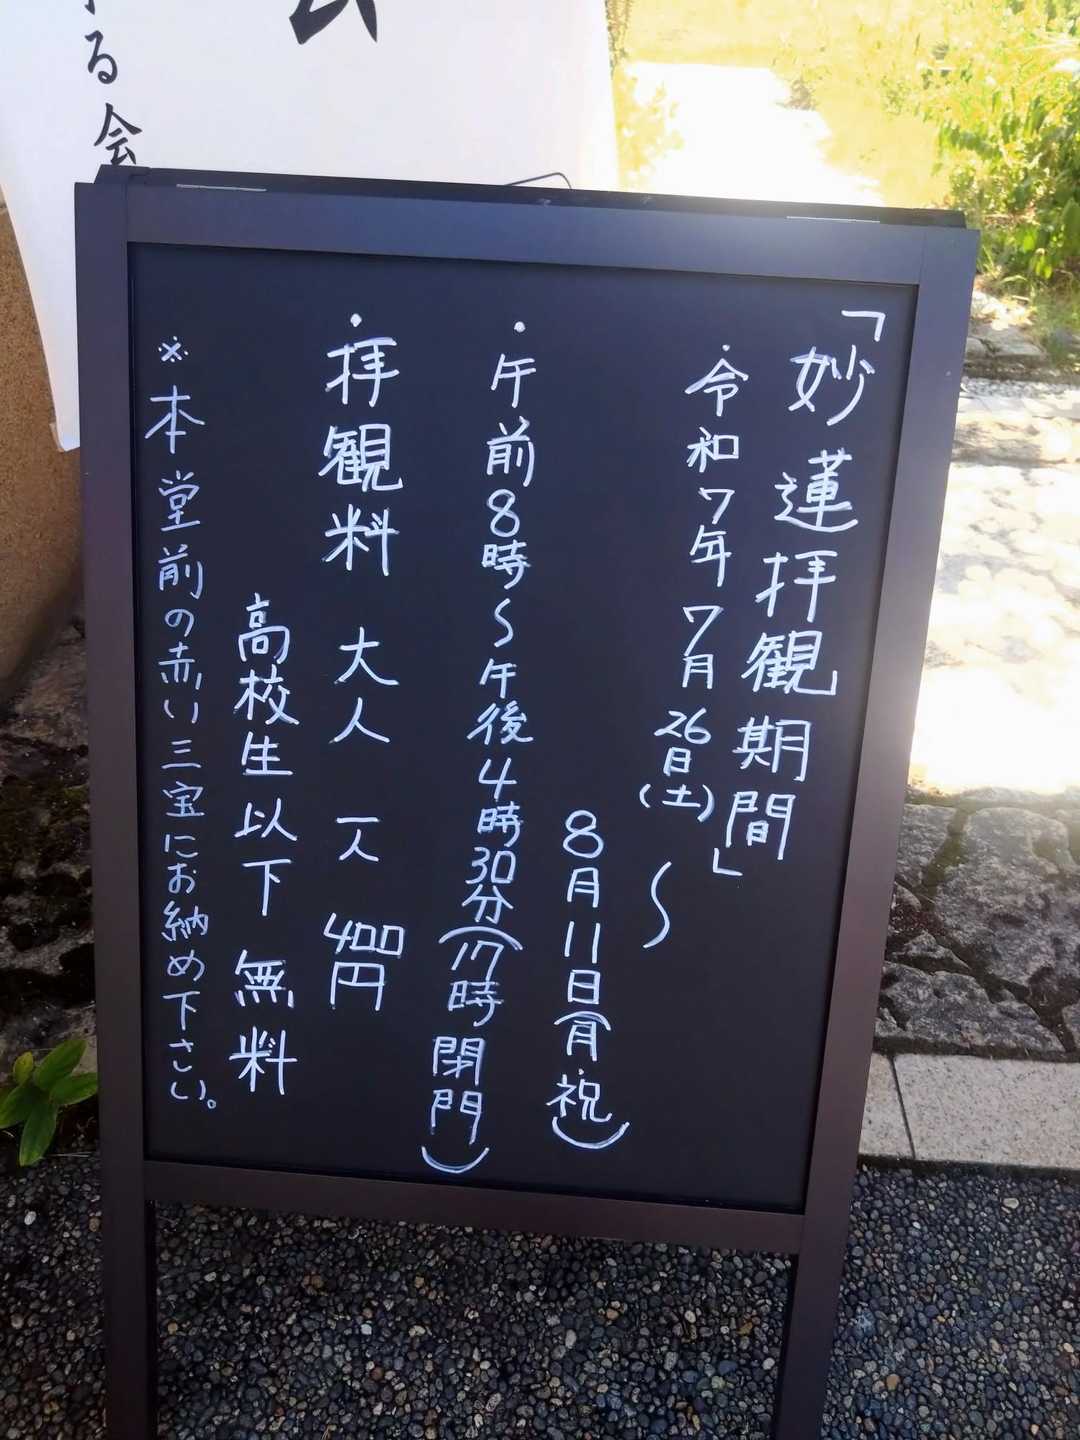 する会
会
「妙蓮拝観期間」
・令和7年7月26日(土)〜
8月11日(月・祝)
・午前8時〜午後4時30分(17時閉門)
・拝観料 大人 一人 400円
高校生以下 無料
※本堂前の赤い三宝にお納め下さい。